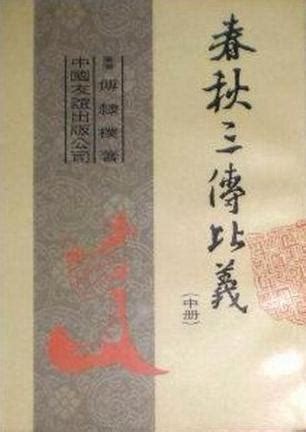 春秋三傳比義
(中册)
臺灣 傅隸樸 著
中國友誼出版公司